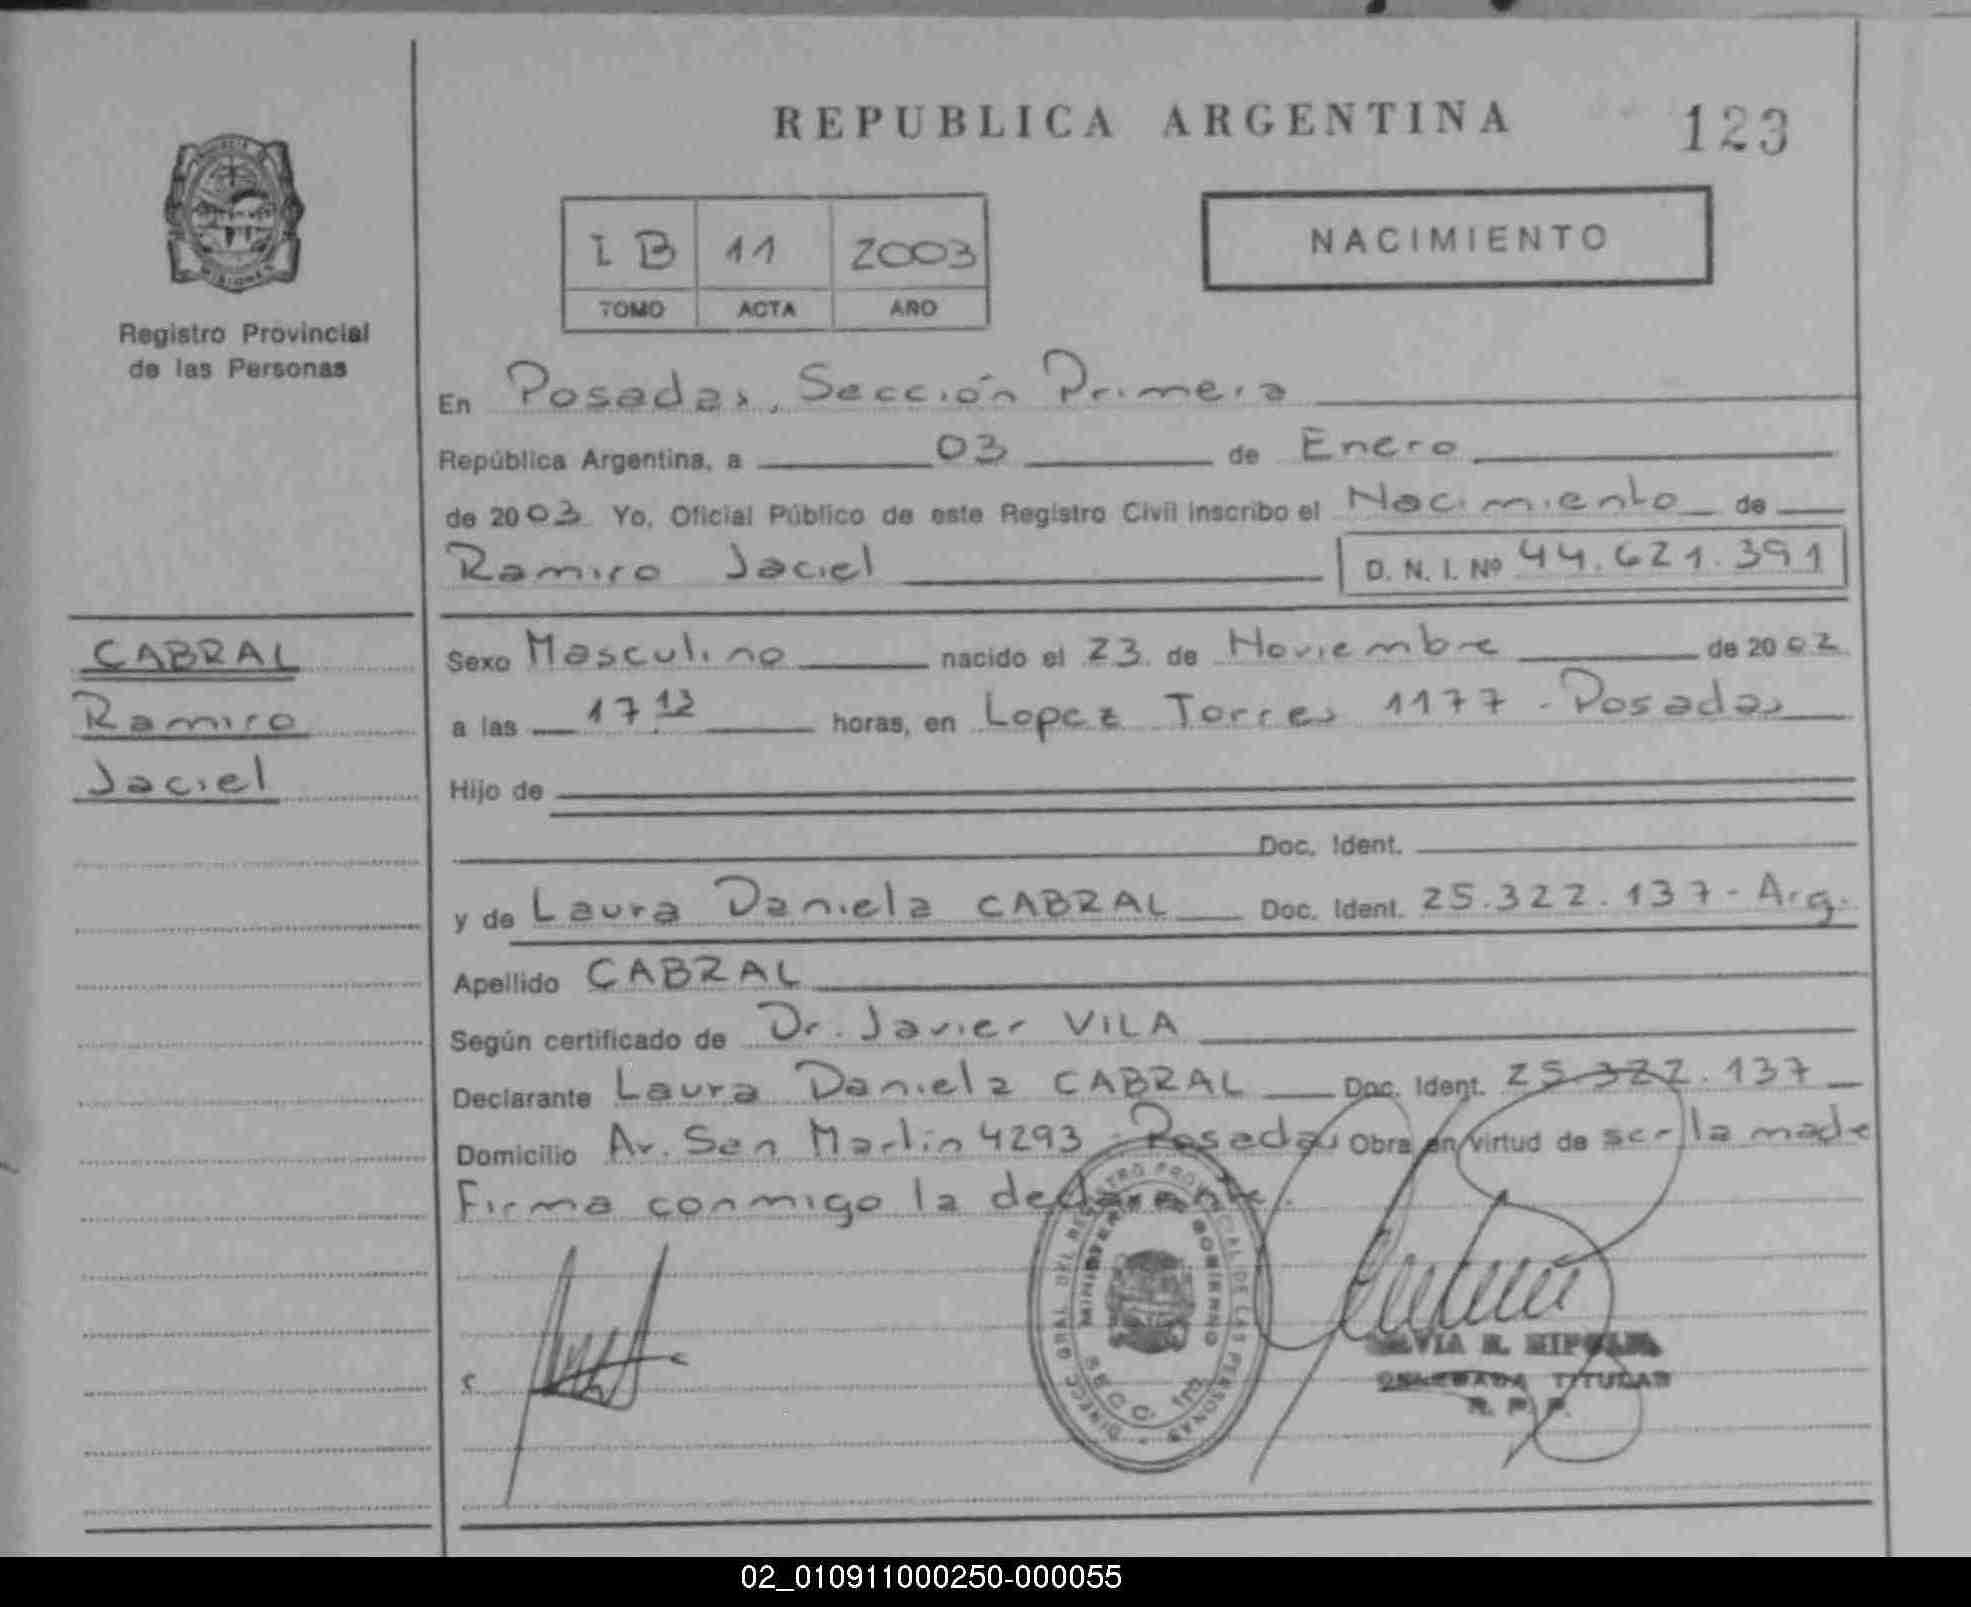 REPUBLICA ARGENTINA
123
I B 11 2003
TOMO ACTA AÑO
NACIMIENTO
Registro Provincial
de las Personas
En Posadas, Sección Primera
República Argentina, a 03 de Enero
de 2003 Yo, Oficial Público de este Registro Civil inscribo el Nacimiento de
Ramiro Jaciel D. N. I. Nº 44.621.391
CABRAL
Ramiro
Jaciel
Sexo Masculino nacido el 23 de Noviembre de 2002
a las 17 12 horas, en Lopez Torres 1177 - Posadas
Hijo de
Doc. Ident.
y de Laura Daniela CABRAL Doc. Ident. 25.322.137 - Arg.
Apellido CABRAL
Según certificado de Dr. Javier VILA
Declarante Laura Daniela CABRAL Doc. Ident. 25.322.137
Domicilio Av. San Martín 4293 - Posadas Obra en virtud de ser la madre
Firma conmigo la declarante.
DIRECC. GRAL. DEL REGISTRO PROVINCIAL DE LAS PERSONAS
MINISTERIO GOBIERNO
SECC. 1ra
TITULAR
R. P. P.
02_010911000250-000055